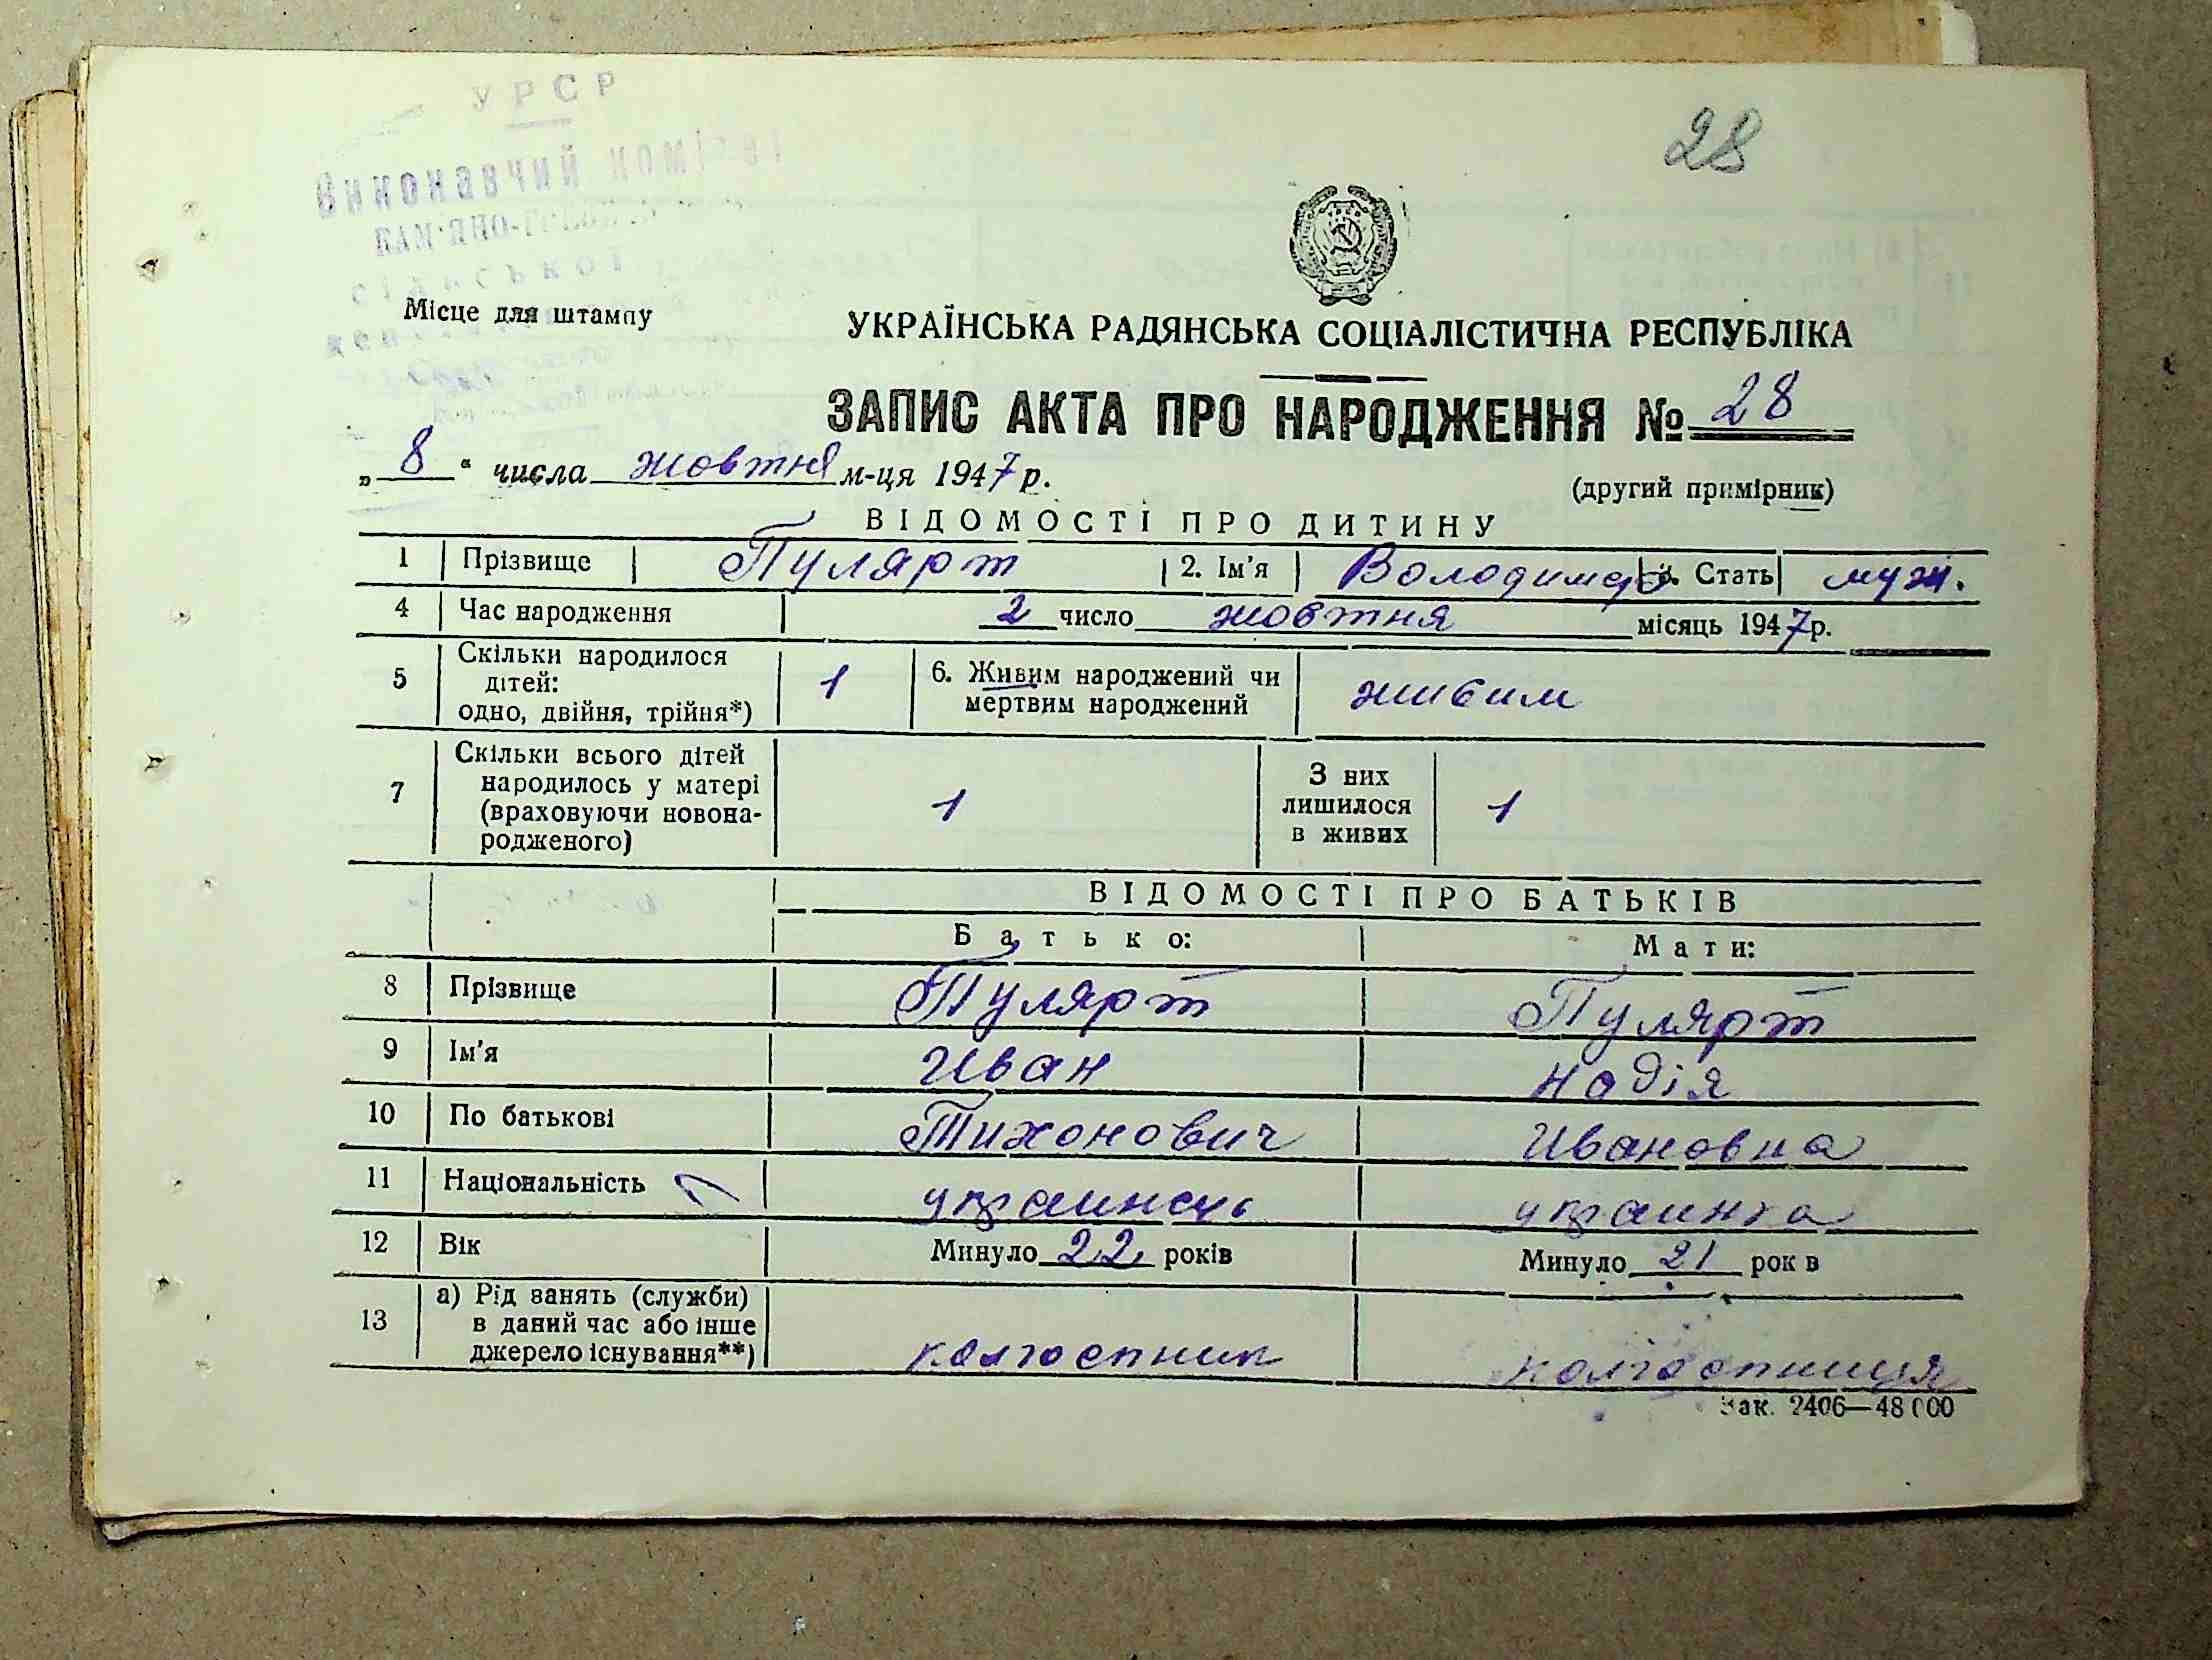 УРСР
28
Виконавчий комітет
КАМ'ЯНО-
СІЛЬСЬКОЇ
Місце для штампу
УКРАЇНСЬКА РАДЯНСЬКА СОЦІАЛІСТИЧНА РЕСПУБЛІКА
ЗАПИС АКТА ПРО НАРОДЖЕННЯ № 28
„8“ числа жовтня м-ця 1947 р.
(другий примірник)
ВІДОМОСТІ ПРО ДИТИНУ
1 Прізвище Пулярт 2. Ім'я Володимир 3. Стать муж.
4 Час народження 2 число жовтня місяць 1947 р.
5 Скільки народилося дітей: одно, двійня, трійня*) 1 6. Живим народжений чи мертвим народжений живим
7 Скільки всього дітей народилось у матері (враховуючи новона-родженого) 1 З них лишилося в живих 1
ВІДОМОСТІ ПРО БАТЬКІВ
Батько: Мати:
8 Прізвище Пулярт Пулярт
9 Ім'я Иван Надія
10 По батькові Тихонович Ивановна
11 Національність украинець украинка
12 Вік Минуло 22 років Минуло 21 рок в
13 а) Рід занять (служби) в даний час або інше джерело існування**) колгоспник колгоспниця
Зак. 2406—48 000